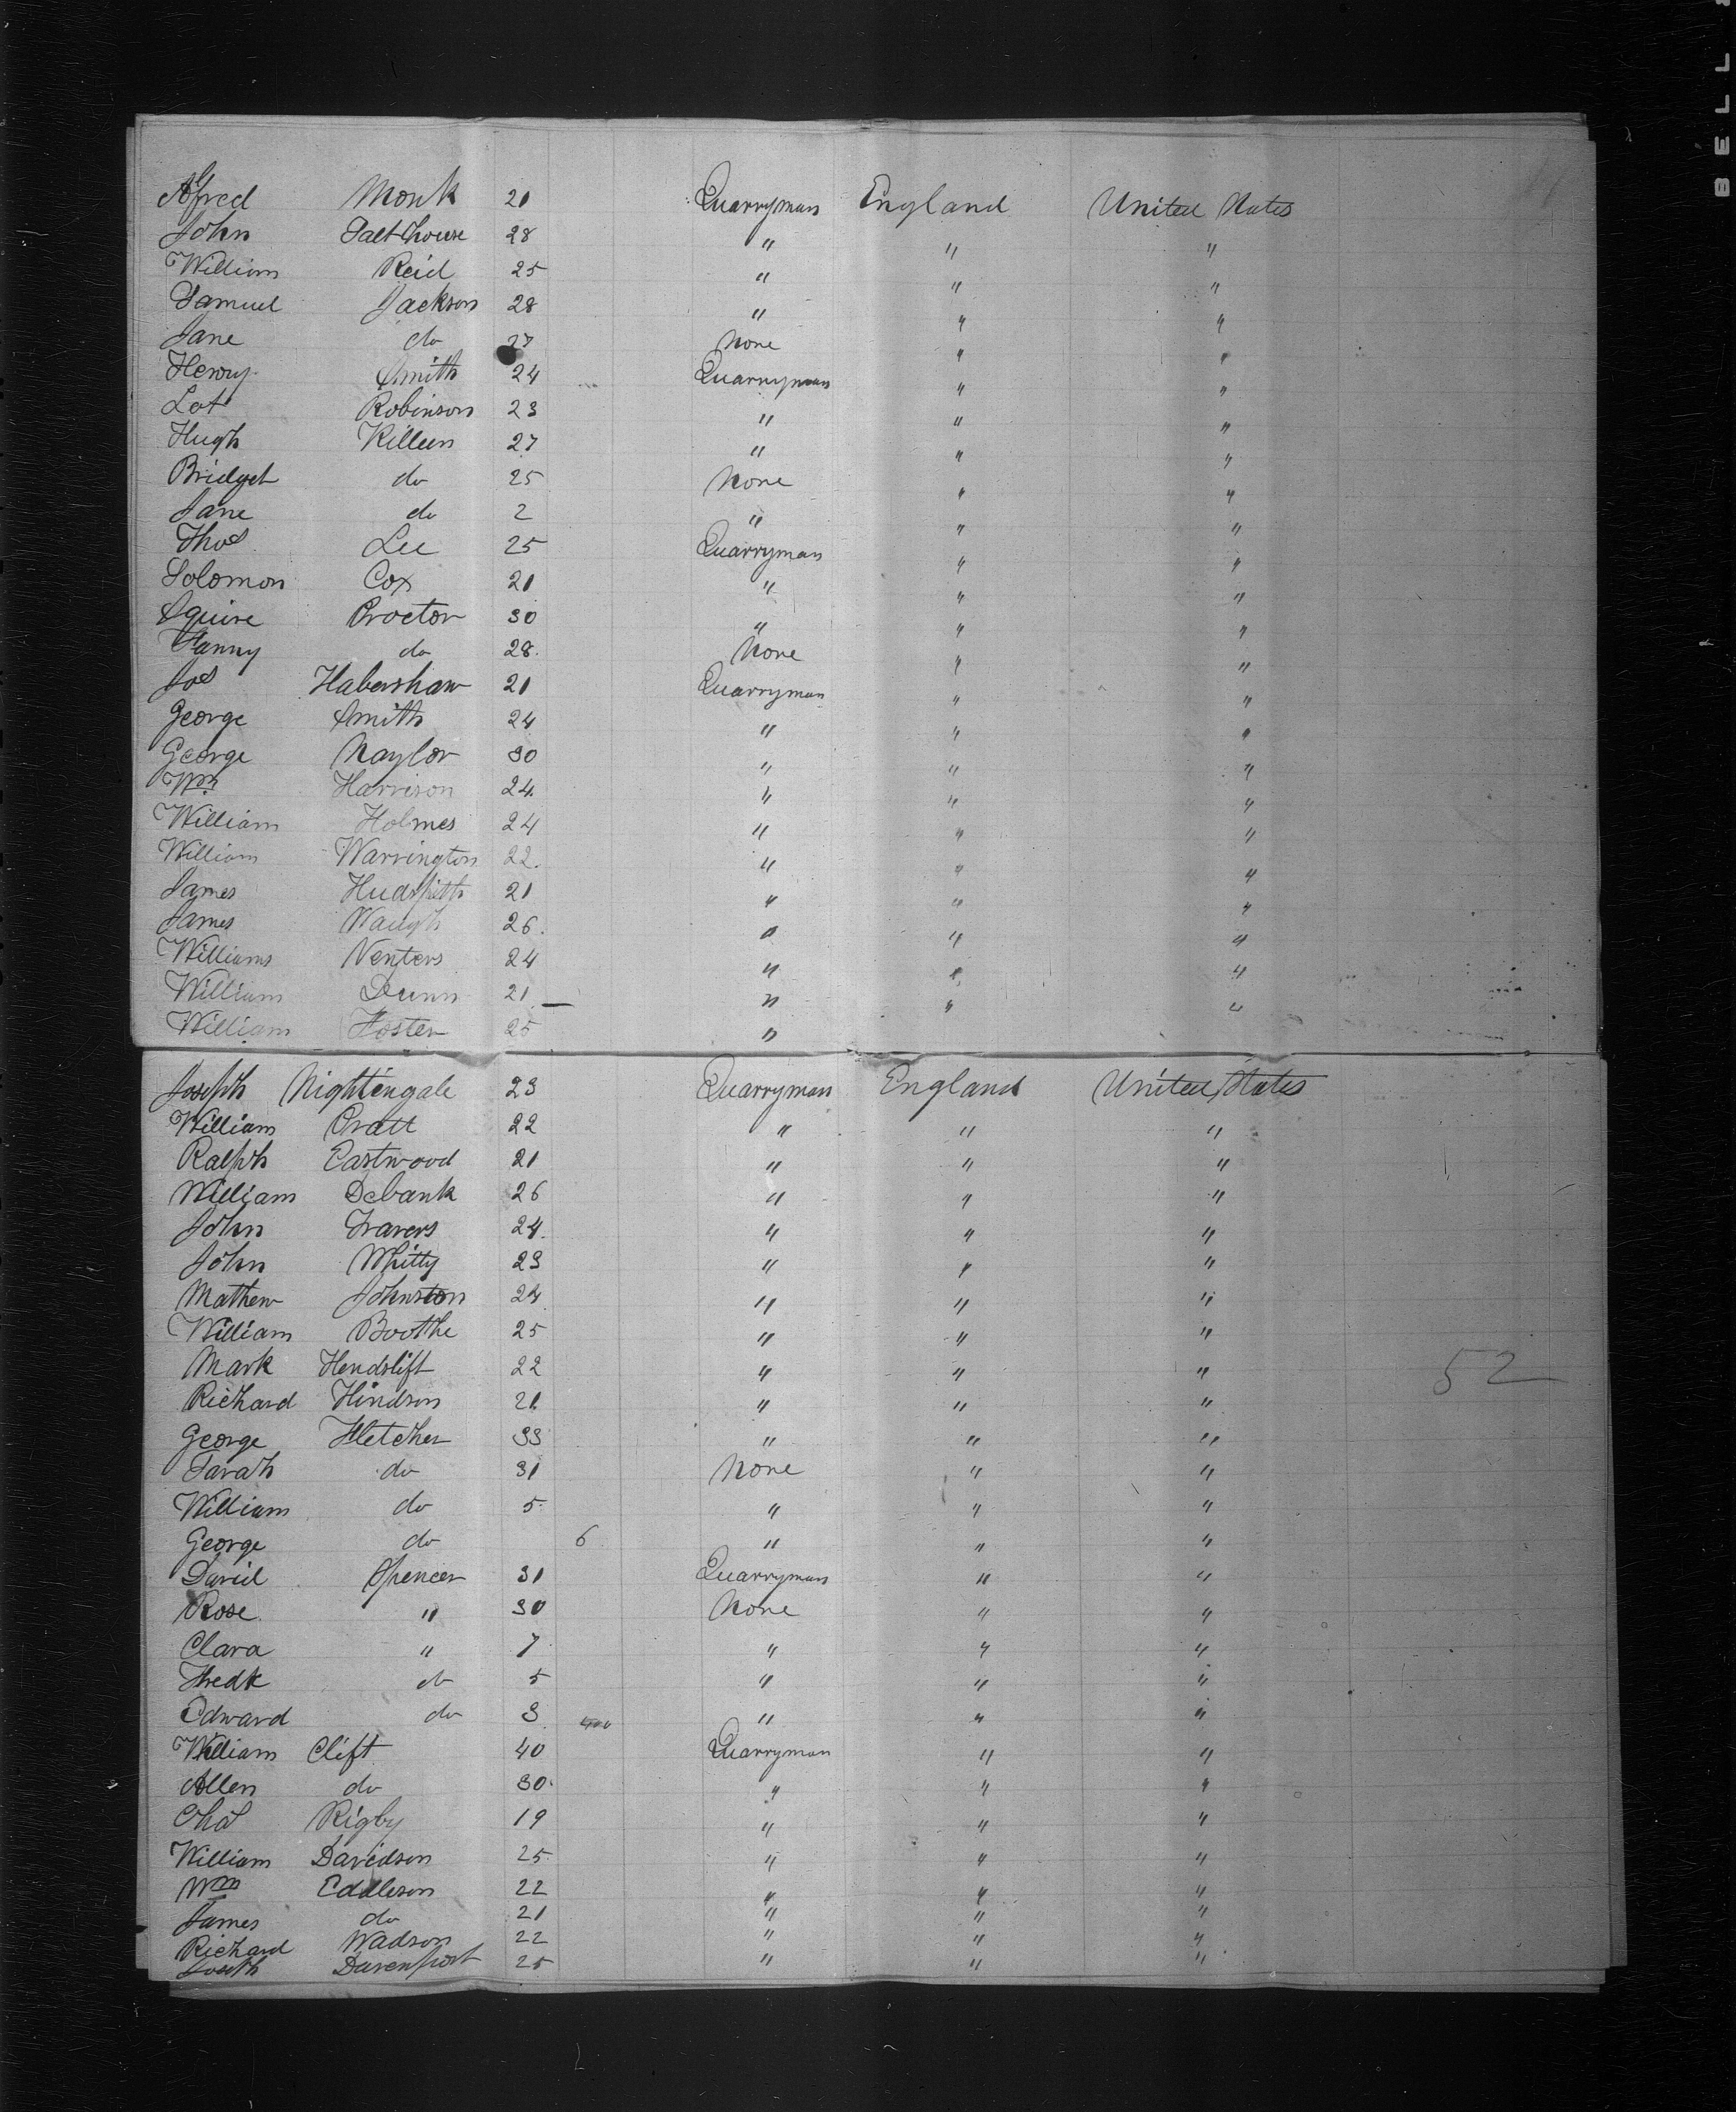 Alfred Monk 21 Quarryman England United States
John Salthouse 28 " " "
William Reid 25 " " "
Samuel Jackson 28 " " "
Jane do 27 None " "
Henry Smith 24 Quarryman " "
Lot Robinson 23 " " "
Hugh Killeen 27 " " "
Bridget do 25 None " "
Jane do 2 " " "
Thos Lee 25 Quarryman " "
Solomon Cox 21 " " "
Squire Proctor 30 " " "
Fanny do 28 None " "
Jos Habershaw 21 Quarryman " "
George Smith 24 " " "
George Naylor 30 " " "
Wm Harrison 24 " " "
William Holmes 24 " " "
William Warrington 22 " " "
James Hudspith 21 " " "
James Waugh 26 " " "
William Venters 24 " " "
William Dunn 21 " " "
William Foster 25 "
Joseph Nightingale 23 Quarryman England United States
William Pratt 22 " " "
Ralph Eastwood 21 " " "
William Debank 26 " " "
John Travers 24 " " "
John Whitty 23 " " "
Mathew Johnston 24 " " "
William Boothe 25 " " "
Mark Hendslift 22 " " " 52
Richard Hindson 21 " " "
George Fletcher 33 " " "
Sarah do 31 None " "
William do 5 " " "
George do 6 " " "
David Spencer 31 Quarryman " "
Rose " 30 None " "
Clara " 7 " " "
Fredk do 5 " " "
Edward do 3 " " "
William Clift 40 Quarryman " "
Allen do 30 " " "
Chas Rigby 19 " " "
William Davidson 25 " " "
Wm Eddleson 22 " " "
James do 21 " " "
Richard Wadson 22 " " "
Davenport 25 " " "
BELL &